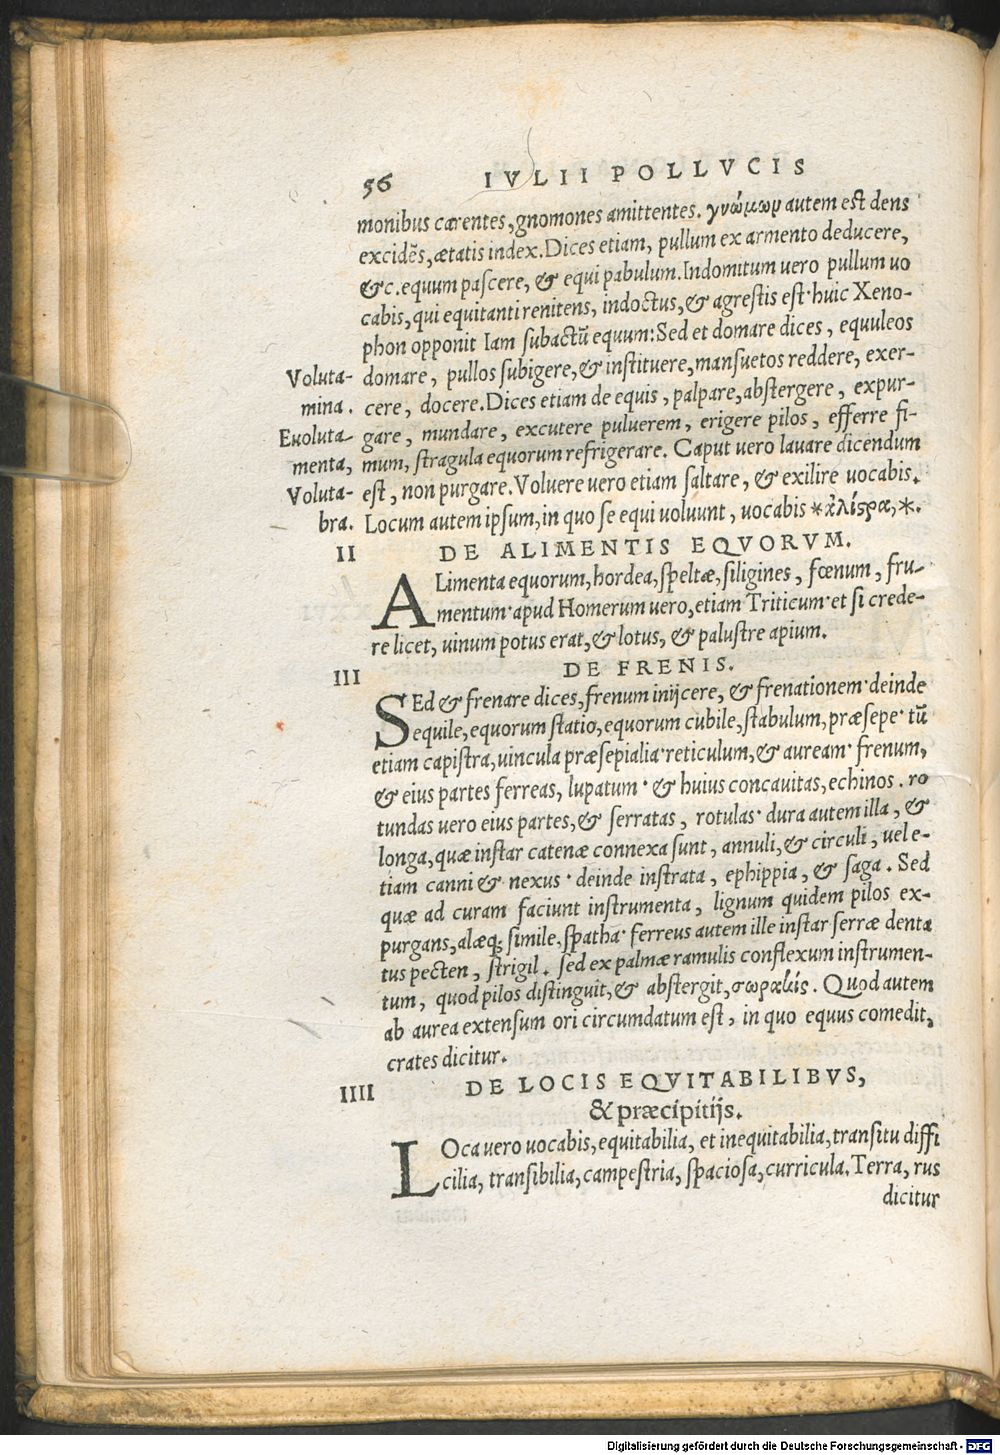 56 IVLII POLLVCIS
monibus carentes, gnomones amittentes. γνώμων autem est dens
excidẽs, ætatis index. Dices etiam, pullum ex armento deducere,
&c. equum pascere, & equi pabulum. Indomitum uero pullum uo
cabis, qui equitanti renitens, indoctus, & agrestis est· huic Xeno-
phon opponit Iam subactũ equum: Sed et domare dices, equuleos
Voluta- domare, pullos subigere, & instituere, mansuetos reddere, exer-
mina. cere, docere. Dices etiam de equis, palpare, abstergere, expur-
Euoluta- gare, mundare, excutere puluerem, erigere pilos, efferre fi-
menta, mum, stragula equorum refrigerare. Caput uero lauare dicendum
Voluta- est, non purgare. Voluere uero etiam saltare, & exilire uocabis.
bra. Locum autem ipsum, in quo se equi uoluunt, uocabis *ἀλίςρα,*.
II DE ALIMENTIS EQVORVM.
ALimenta equorum, hordea, speltæ, siligines, fœnum, fru-
mentum· apud Homerum uero, etiam Triticum· et si crede-
re licet, uinum potus erat, & lotus, & palustre apium.
III DE FRENIS.
SEd & frenare dices, frenum inijcere, & frenationem· deinde
equile, equorum statio, equorum cubile, stabulum, præsepe· tũ
etiam capistra, uincula præsepialia· reticulum, & auream· frenum,
& eius partes ferreas, lupatum· & huius concauitas, echinos. ro
tundas uero eius partes, & serratas, rotulas· dura autem illa, &
longa, quæ instar catenæ connexa sunt, annuli, & circuli, uel e-
tiam canni & nexus· deinde instrata, ephippia, & saga. Sed
quæ ad curam faciunt instrumenta, lignum quidem pilos ex-
purgans, alæq; simile, spatha· ferreus autem ille instar serræ denta
tus pecten, strigil. sed ex palmæ ramulis conflexum instrumen-
tum, quod pilos distinguit, & abstergit, σωρακίς. Quod autem
ab aurea extensum ori circumdatum est, in quo equus comedit,
crates dicitur.
IIII DE LOCIS EQVITABILIBVS,
& præcipitijs.
LOca uero uocabis, equitabilia, et inequitabilia, transitu diffi
cilia, transibilia, campestria, spaciosa, curricula. Terra, rus
dicitur
Digitalisierung gefördert durch die Deutsche Forschungsgemeinschaft - DFG